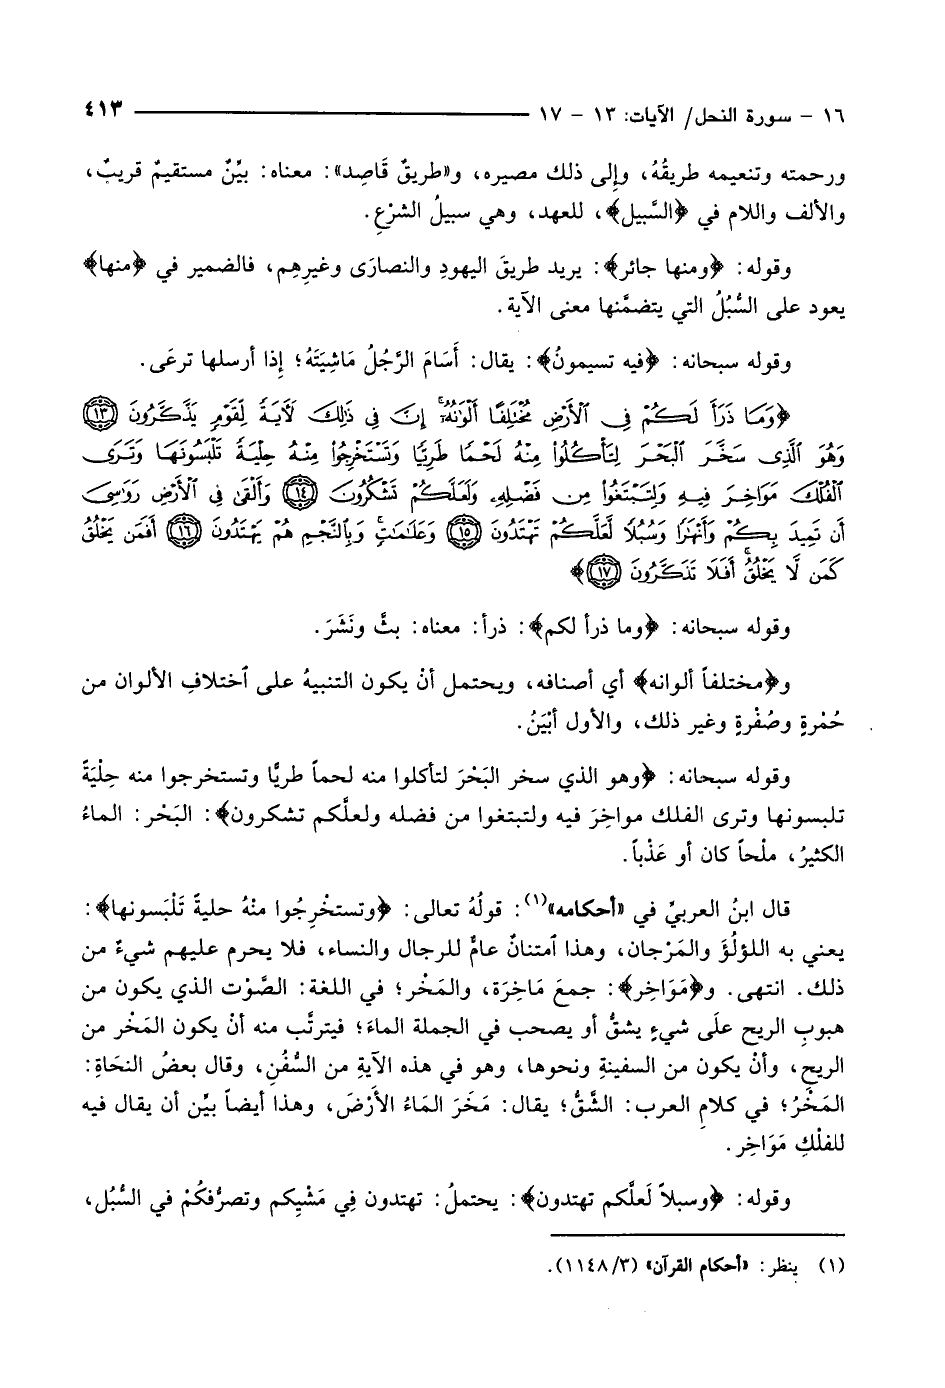 ١٦ - سورة النحل/ الآيات: ١٣ - ١٧ ٤١٣
ورحمته وتنعيمه طريقُهُ، وإلى ذلك مصيره، و«طريقٌ قَاصِد»: معناه: بيِّنٌ مستقيمٌ قريبٌ،
والألف واللام في ﴿السَّبيل﴾، للعهد، وهي سبيلُ الشرْعِ.
وقوله: ﴿ومنها جائر﴾: يريد طريقَ اليهودِ والنصارَى وغيرِهِم، فالضمير في ﴿منها﴾
يعود على السُّبُلُ التي يتضمَّنها معنى الآية.
وقوله سبحانه: ﴿فيه تسيمونُ﴾: يقال: أَسَامَ الرَّجُلُ مَاشِيَتَهُ؛ إِذا أرسلها ترعَى.
﴿وَمَا ذَرَأَ لَكُمْ فِى ٱلْأَرْضِ مُخْتَلِفًا أَلْوَٰنُهُۥٓ إِنَّ فِى ذَٰلِكَ لَآيَةً لِّقَوْمٍ يَذَّكَّرُونَ ﴿١٣﴾
وَهُوَ ٱلَّذِى سَخَّرَ ٱلْبَحْرَ لِتَأْكُلُوا۟ مِنْهُ لَحْمًا طَرِيًّا وَتَسْتَخْرِجُوا۟ مِنْهُ حِلْيَةً تَلْبَسُونَهَا وَتَرَى
ٱلْفُلْكَ مَوَاخِرَ فِيهِ وَلِتَبْتَغُوا۟ مِن فَضْلِهِۦ وَلَعَلَّكُمْ تَشْكُرُونَ ﴿١٤﴾ وَأَلْقَىٰ فِى ٱلْأَرْضِ رَوَٰسِىَ
أَن تَمِيدَ بِكُمْ وَأَنْهَٰرًا وَسُبُلًا لَّعَلَّكُمْ تَهْتَدُونَ ﴿١٥﴾ وَعَلَٰمَٰتٍ وَبِٱلنَّجْمِ هُمْ يَهْتَدُونَ ﴿١٦﴾ أَفَمَن يَخْلُقُ
كَمَن لَّا يَخْلُقُ أَفَلَا تَذَكَّرُونَ ﴿١٧﴾﴾
وقوله سبحانه: ﴿وما ذرأ لكم﴾: ذرأ: معناه: بثَّ ونَشَرَ.
و﴿مختلفاً ألوانه﴾ أي أصنافه، ويحتمل أنْ يكون التنبيهُ على ٱختلافِ الألوان من
حُمْرةٍ وصُفْرةٍ وغير ذلك، والأول أبْيَنُ.
وقوله سبحانه: ﴿وهو الذي سخر البَحْرَ لتأكلوا منه لحماً طريًّا وتستخرجوا منه حِلْيَةً
تلبسونها وترى الفلك مواخِرَ فيه ولتبتغوا من فضله ولعلَّكم تشكرون﴾: البَحْر: الماءُ
الكثيرُ، ملْحاً كان أو عَذْباً.
قال ابنُ العربيِّ في «أحكامه»(١): قولُهُ تعالى: ﴿وتستخْرِجُوا منْهُ حليةً تَلْبَسونها﴾:
يعني به اللؤلُؤَ والمَرْجان، وهذا ٱمتنانٌ عامٌّ للرجال والنساء، فلا يحرم عليهم شيءٌ من
ذلك. انتهى. و﴿مَوَاخِر﴾: جمعَ مَاخِرَة، والمَخْر؛ في اللغة: الصَّوْت الذي يكون من
هبوبِ الريح علَى شيءٍ يشقُّ أو يصحب في الجملة الماءَ؛ فيترتَّب منه أنْ يكون المَخْر من
الريح، وأنْ يكون من السفينةِ ونحوها، وهو في هذه الآيةِ من السُّفُنِ، وقال بعضُ النحَاةِ:
المَخْرُ؛ في كلامِ العرب: الشَّقُّ؛ يقال: مَخَرَ المَاءُ الأَرْضَ، وهذا أيضاً بيِّن أن يقال فيه
للفلْكِ مَوَاخِر.
وقوله: ﴿وسبلاً لَعلَّكم تهتدون﴾: يحتملُ: تهتدون فِي مَشْيِكم وتصرُّفكُمْ في السُّبُل،
(١) ينظر: «أحكام القرآن» (٣/ ١١٤٨).